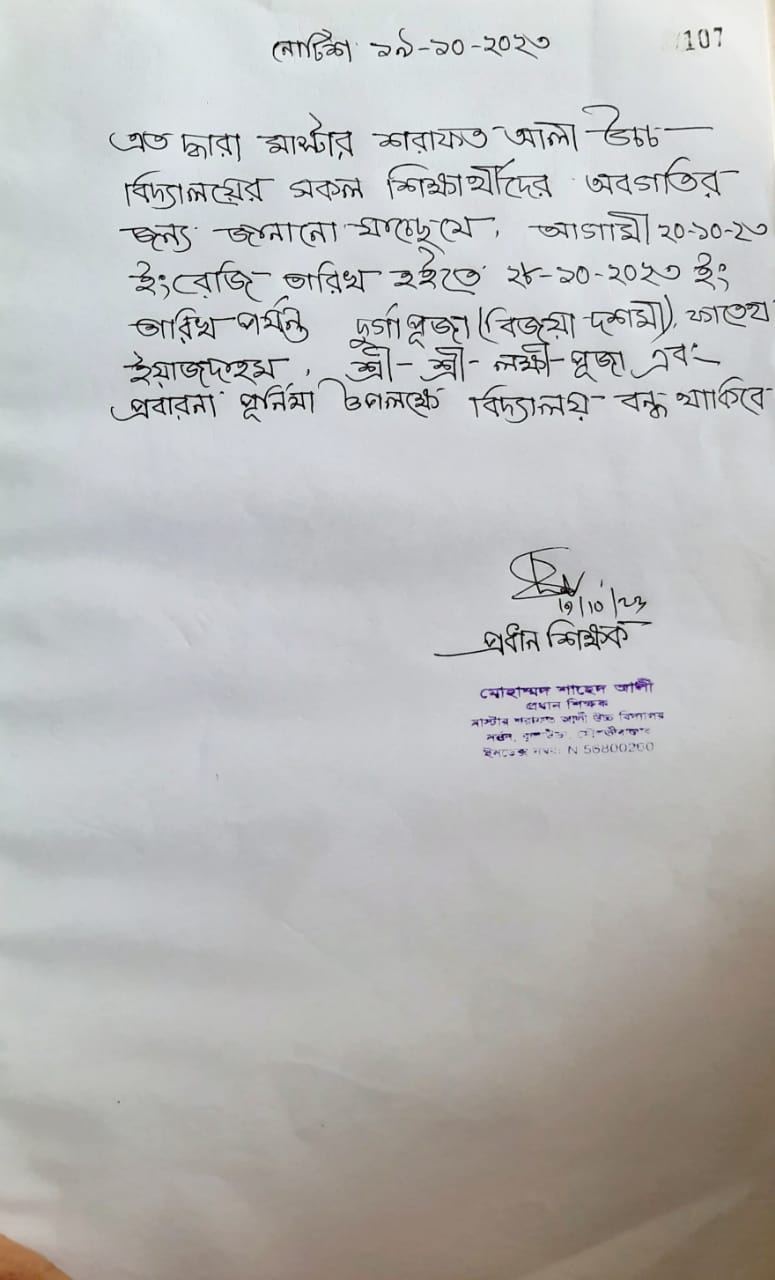 নোটিশ ১৯-১০-২০২৩
107
এত দ্বারা মাস্টার শরাফত আলী উচ্চ
বিদ্যালয়ের সকল শিক্ষার্থীদের অবগতির
জন্য জানানো যাচ্ছেযে, আগামী ২০-১০-২৩
ইংরেজি তারিখ হইতে ২৮-১০-২০২৩ ইং
তারিখ পর্যন্ত দুর্গাপূজা (বিজয়া দশমী), ফাতেহা
ইয়াজদাহম, শ্রী-শ্রী-লক্ষী-পূজা এবং
প্রবারনা পূর্নিমা উপলক্ষে বিদ্যালয় বন্ধ থাকিবে
19/10/23
প্রধান শিক্ষক
মোহাম্মদ শাহেদ আলী
প্রধান শিক্ষক
মাস্টার শরাফত আলী উচ্চ বিদ্যালয়
ইনডেক্স নম্বর: N 56800260